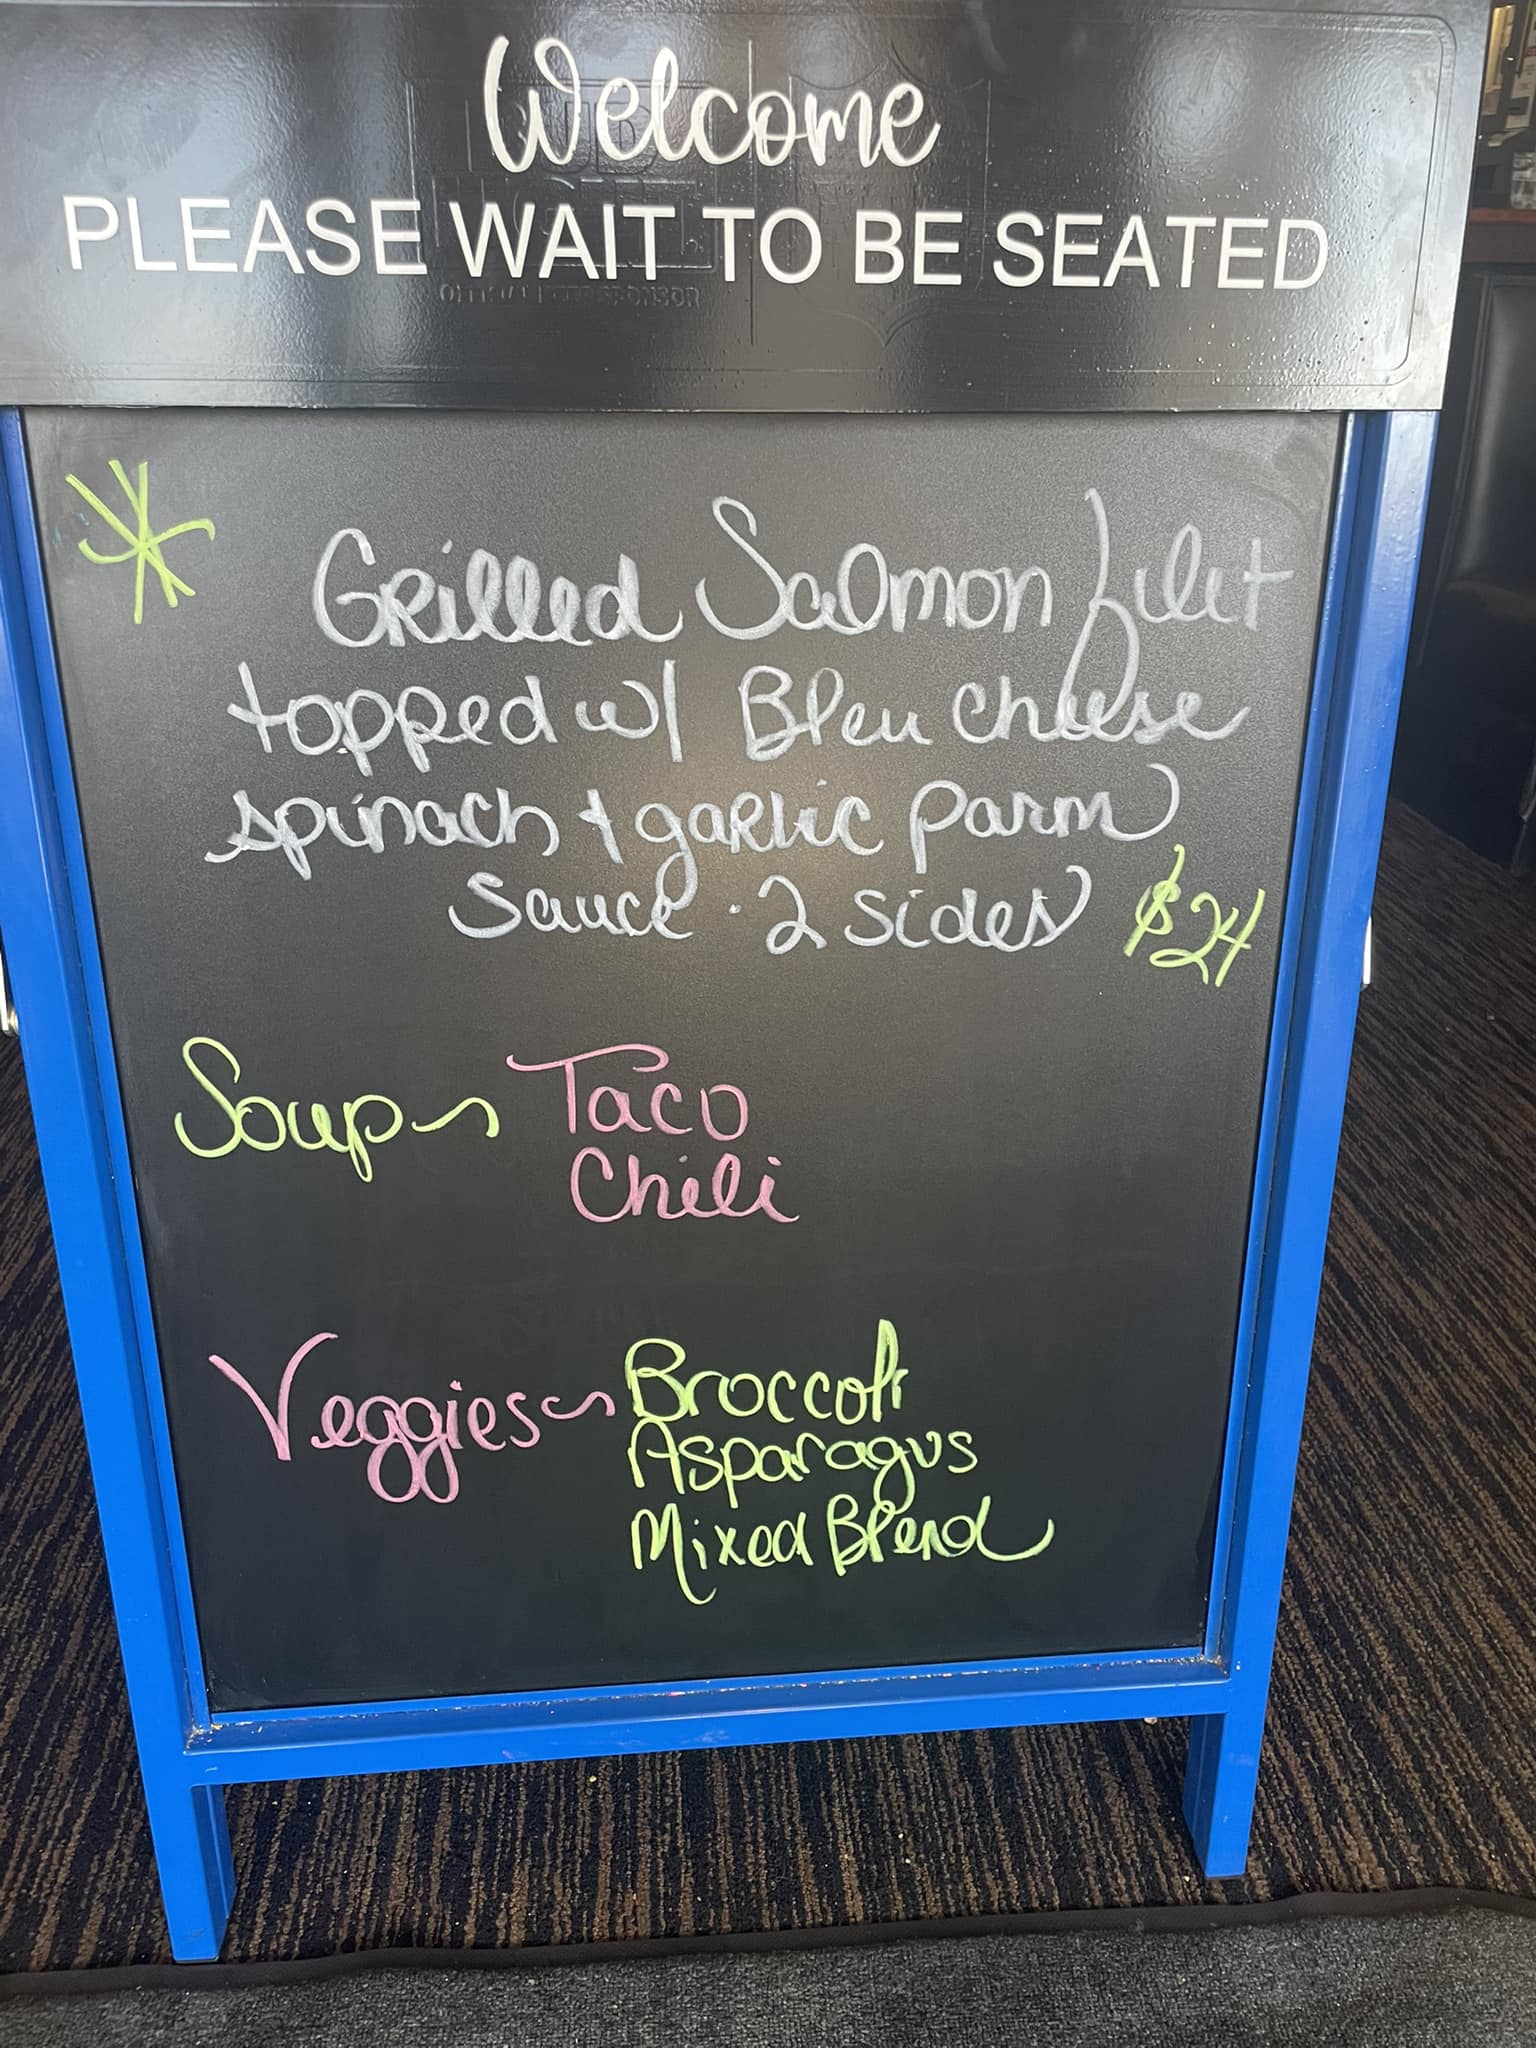 Welcome
PLEASE WAIT TO BE SEATED
OFFICIAL BEER SPONSOR
Grilled Salmon filet
topped w/ Bleu cheese
spinach + garlic parm
sauce · 2 sides $24
Soup ~ Taco
Chili
Veggies ~ Broccoli
Asparagus
Mixed Blend